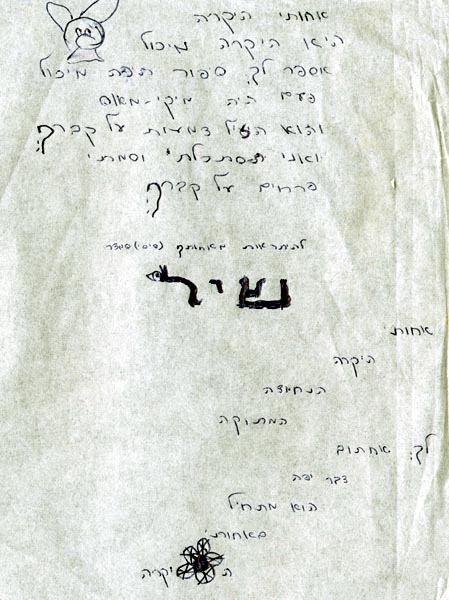 אחותי היקרה
היא היקרה מיכול
אספר לך ספור היפה מיכול
פעם היה מיקי-מאוס
והוא הזיל דמעות על קברך
ואני הסתכלתי וסמתי
פרחים על קברך
להתראות מאחותך
שיר
אחותי
היקרה
הנחמדה
המתוקה
לך אחתוב
דבר יפה
הוא מתחיל
באחותי
היקרה